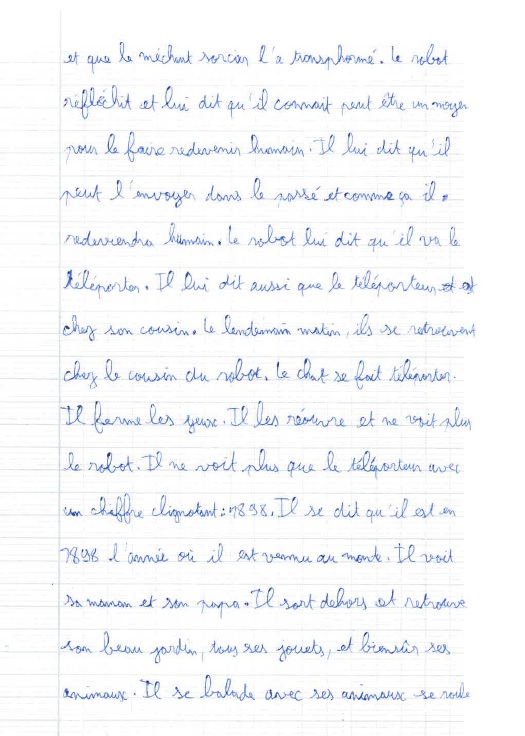 et que le méchant sorcier l'a transphormé. Le robot
réfléchit et lui dit qu'il connait peut être un moyen
pour le faire redevenir humain. Il lui dit qu'il
peut l'envoyer dans le passé et comme ça il
redeviendra humain. Le robot lui dit qu'il va le
téléporter. Il lui dit aussi que le téléporteur est
chez son cousin. Le lendemain matin, ils se retrouvent
chez le cousin du robot. Le chat se fait téléporter.
Il ferme les yeux. Il les réouvre et ne voit plus
le robot. Il ne voit plus que le téléporteur avec
un chaffre clignotant : 1898. Il se dit qu'il est en
1898 l'année où il est vennu au monde. Il voit
sa maman et son papa. Il sort dehors et retrouve
son beau jardin, tous ses jouets, et biensûr ses
animaux. Il se balade avec ses animaux se roule